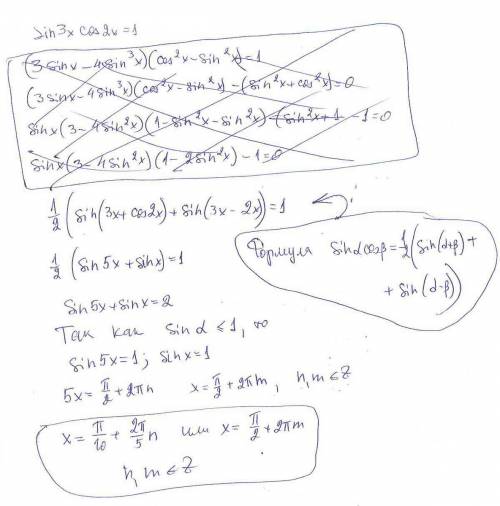 sin3x cos2x=1
(3sinx - 4sin³x)(cos²x - sin²x)=1
(3sinx - 4sin³x)(cos²x - sin²x) - (sin²x + cos²x)=0
sinx(3 - 4sin²x)(1 - sin²x - sin²x) - (sin²x + 1 - 1=0
sinx(3 - 4sin²x)(1 - 2sin²x) - 1=0
1/2 (sin(3x + cos2x) + sin(3x - 2x))=1
1/2 (sin5x + sinx)=1
Формула sinαcosβ = 1/2 (sin(α+β) +
+ sin(α-β))
sin5x + sinx = 2
Так как sin α ≤ 1, то
sin5x=1; sinx=1
5x = π/2 + 2πn   x = π/2 + 2πm, n,m ∈ Z
x = π/10 + 2π/5 n или x = π/2 + 2πm
n,m ∈ Z